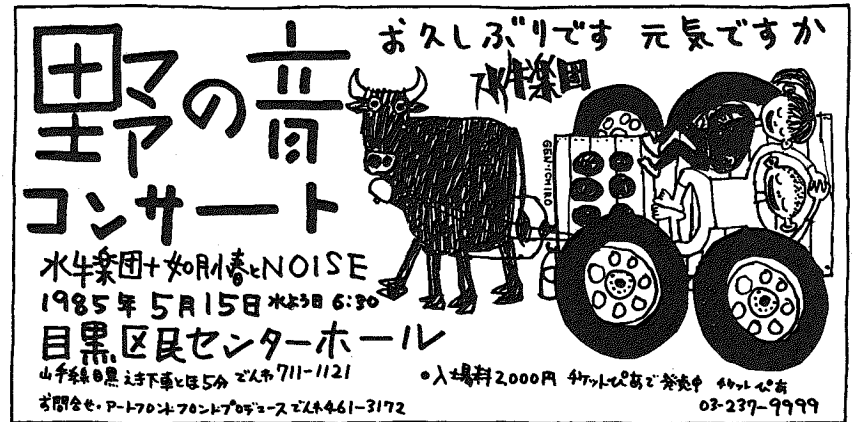 お久しぶりです 元気ですか
水牛楽団
野の音
コンサート
GEN-ICHIRO
水牛楽団+如月小春とNOISE
1985年5月15日 水よう日 6:30
目黒区民センターホール
山手線目黒えき下車とほ5分 でんわ711-1121
•入場料2,000円 チケットぴあで発売中 チケットぴあ
お問合せ・アートフロントフロントプロデュース でんわ461-3172
03-237-9999